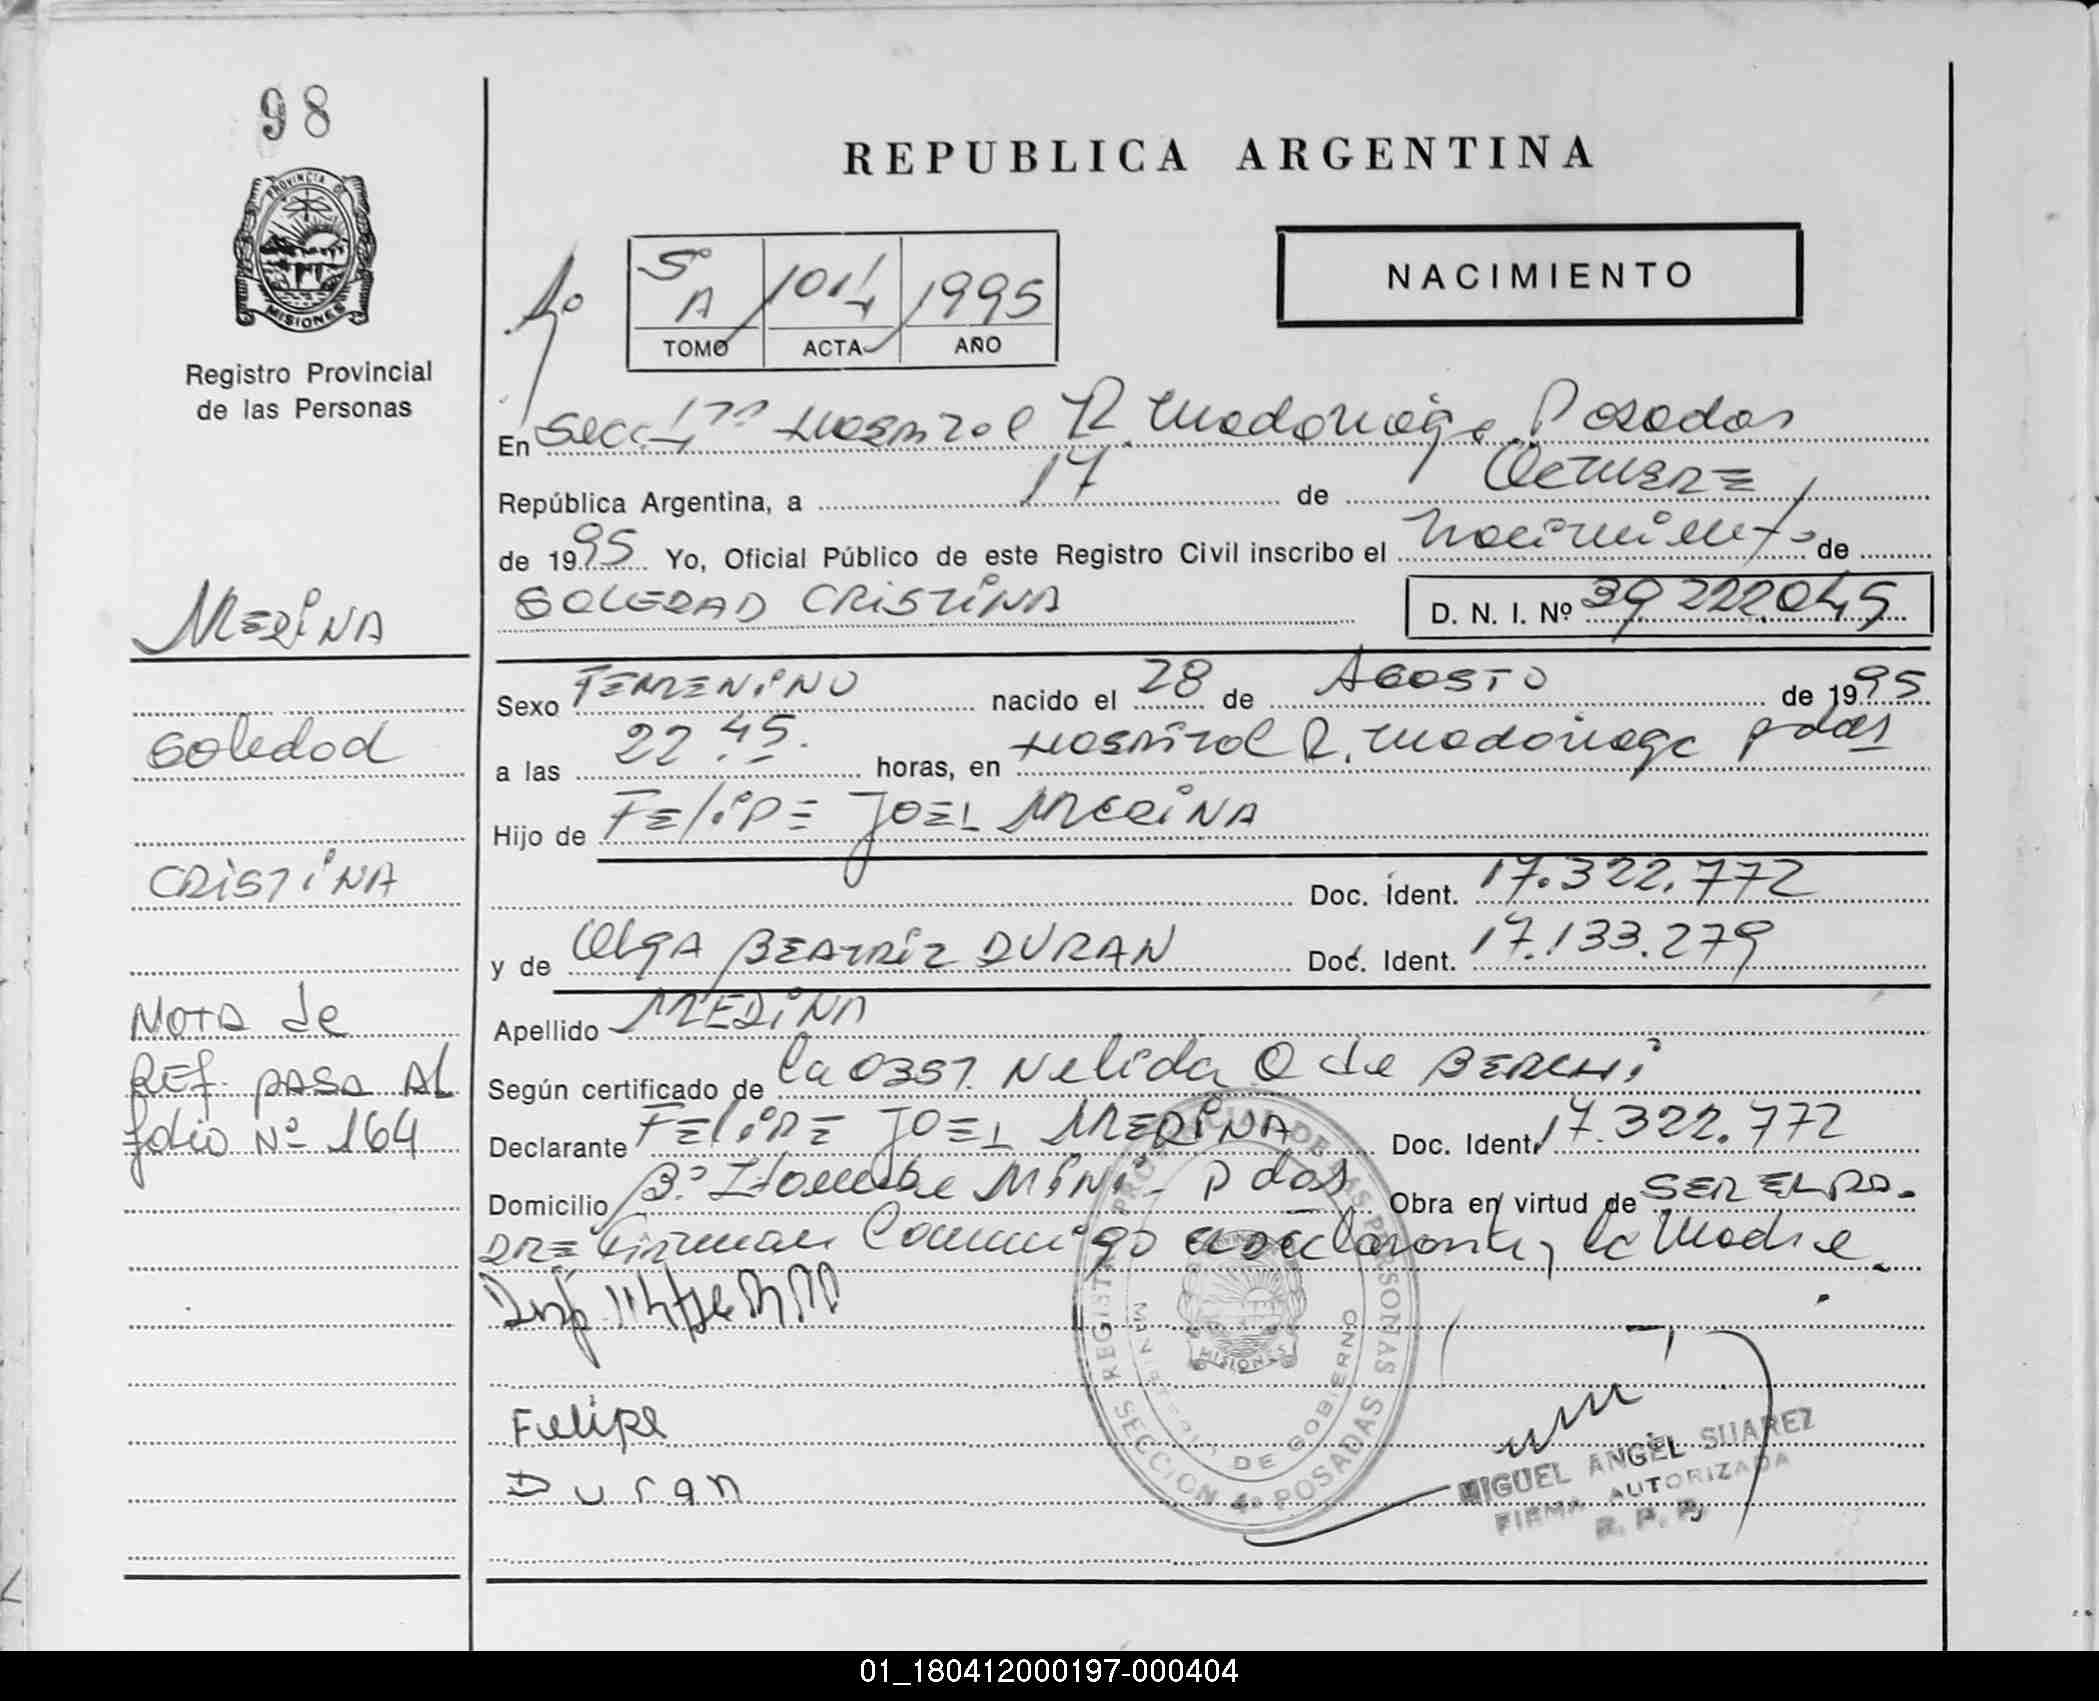 98
PROVINCIA DE
MISIONES
Registro Provincial
de las Personas
REPUBLICA ARGENTINA
NACIMIENTO
4º
5º A 1014 1995
TOMO ACTA AÑO
En Secc. Hospital R. Madariaga Posadas
República Argentina, a 17 de Octubre
de 1995 Yo, Oficial Público de este Registro Civil inscribo el nacimiento de
SOLEDAD CRISTINA D. N. I. Nº 39.222.045
Sexo FEMENINO nacido el 28 de AGOSTO de 1995
a las 22.45. horas, en Hospital R. Madariaga Pdas
Hijo de FELIPE JOEL MEDINA
Doc. Ident. 17.322.772
y de OLGA BEATRIZ DURAN Doc. Ident. 17.133.279
Apellido MEDINA
Según certificado de la OBST. Nelida O de
Declarante FELIPE JOEL MEDINA Doc. Ident. 17.322.772
Domicilio Bº Pdas Obra en virtud de SER EL PA-
DRE Firman Conmigo declarante y la Madre.
Felipe
Duran
MEDINA
Soledad
CRISTINA
NOTA de
REF. PASA AL
folio Nº 164
REGISTRO PROVINCIAL DE LAS PERSONAS
SECCION 4º POSADAS
MINISTERIO DE GOBIERNO
MISIONES
MIGUEL ANGEL SUAREZ
FIRMA AUTORIZADA
R. P. P.
01_180412000197-000404